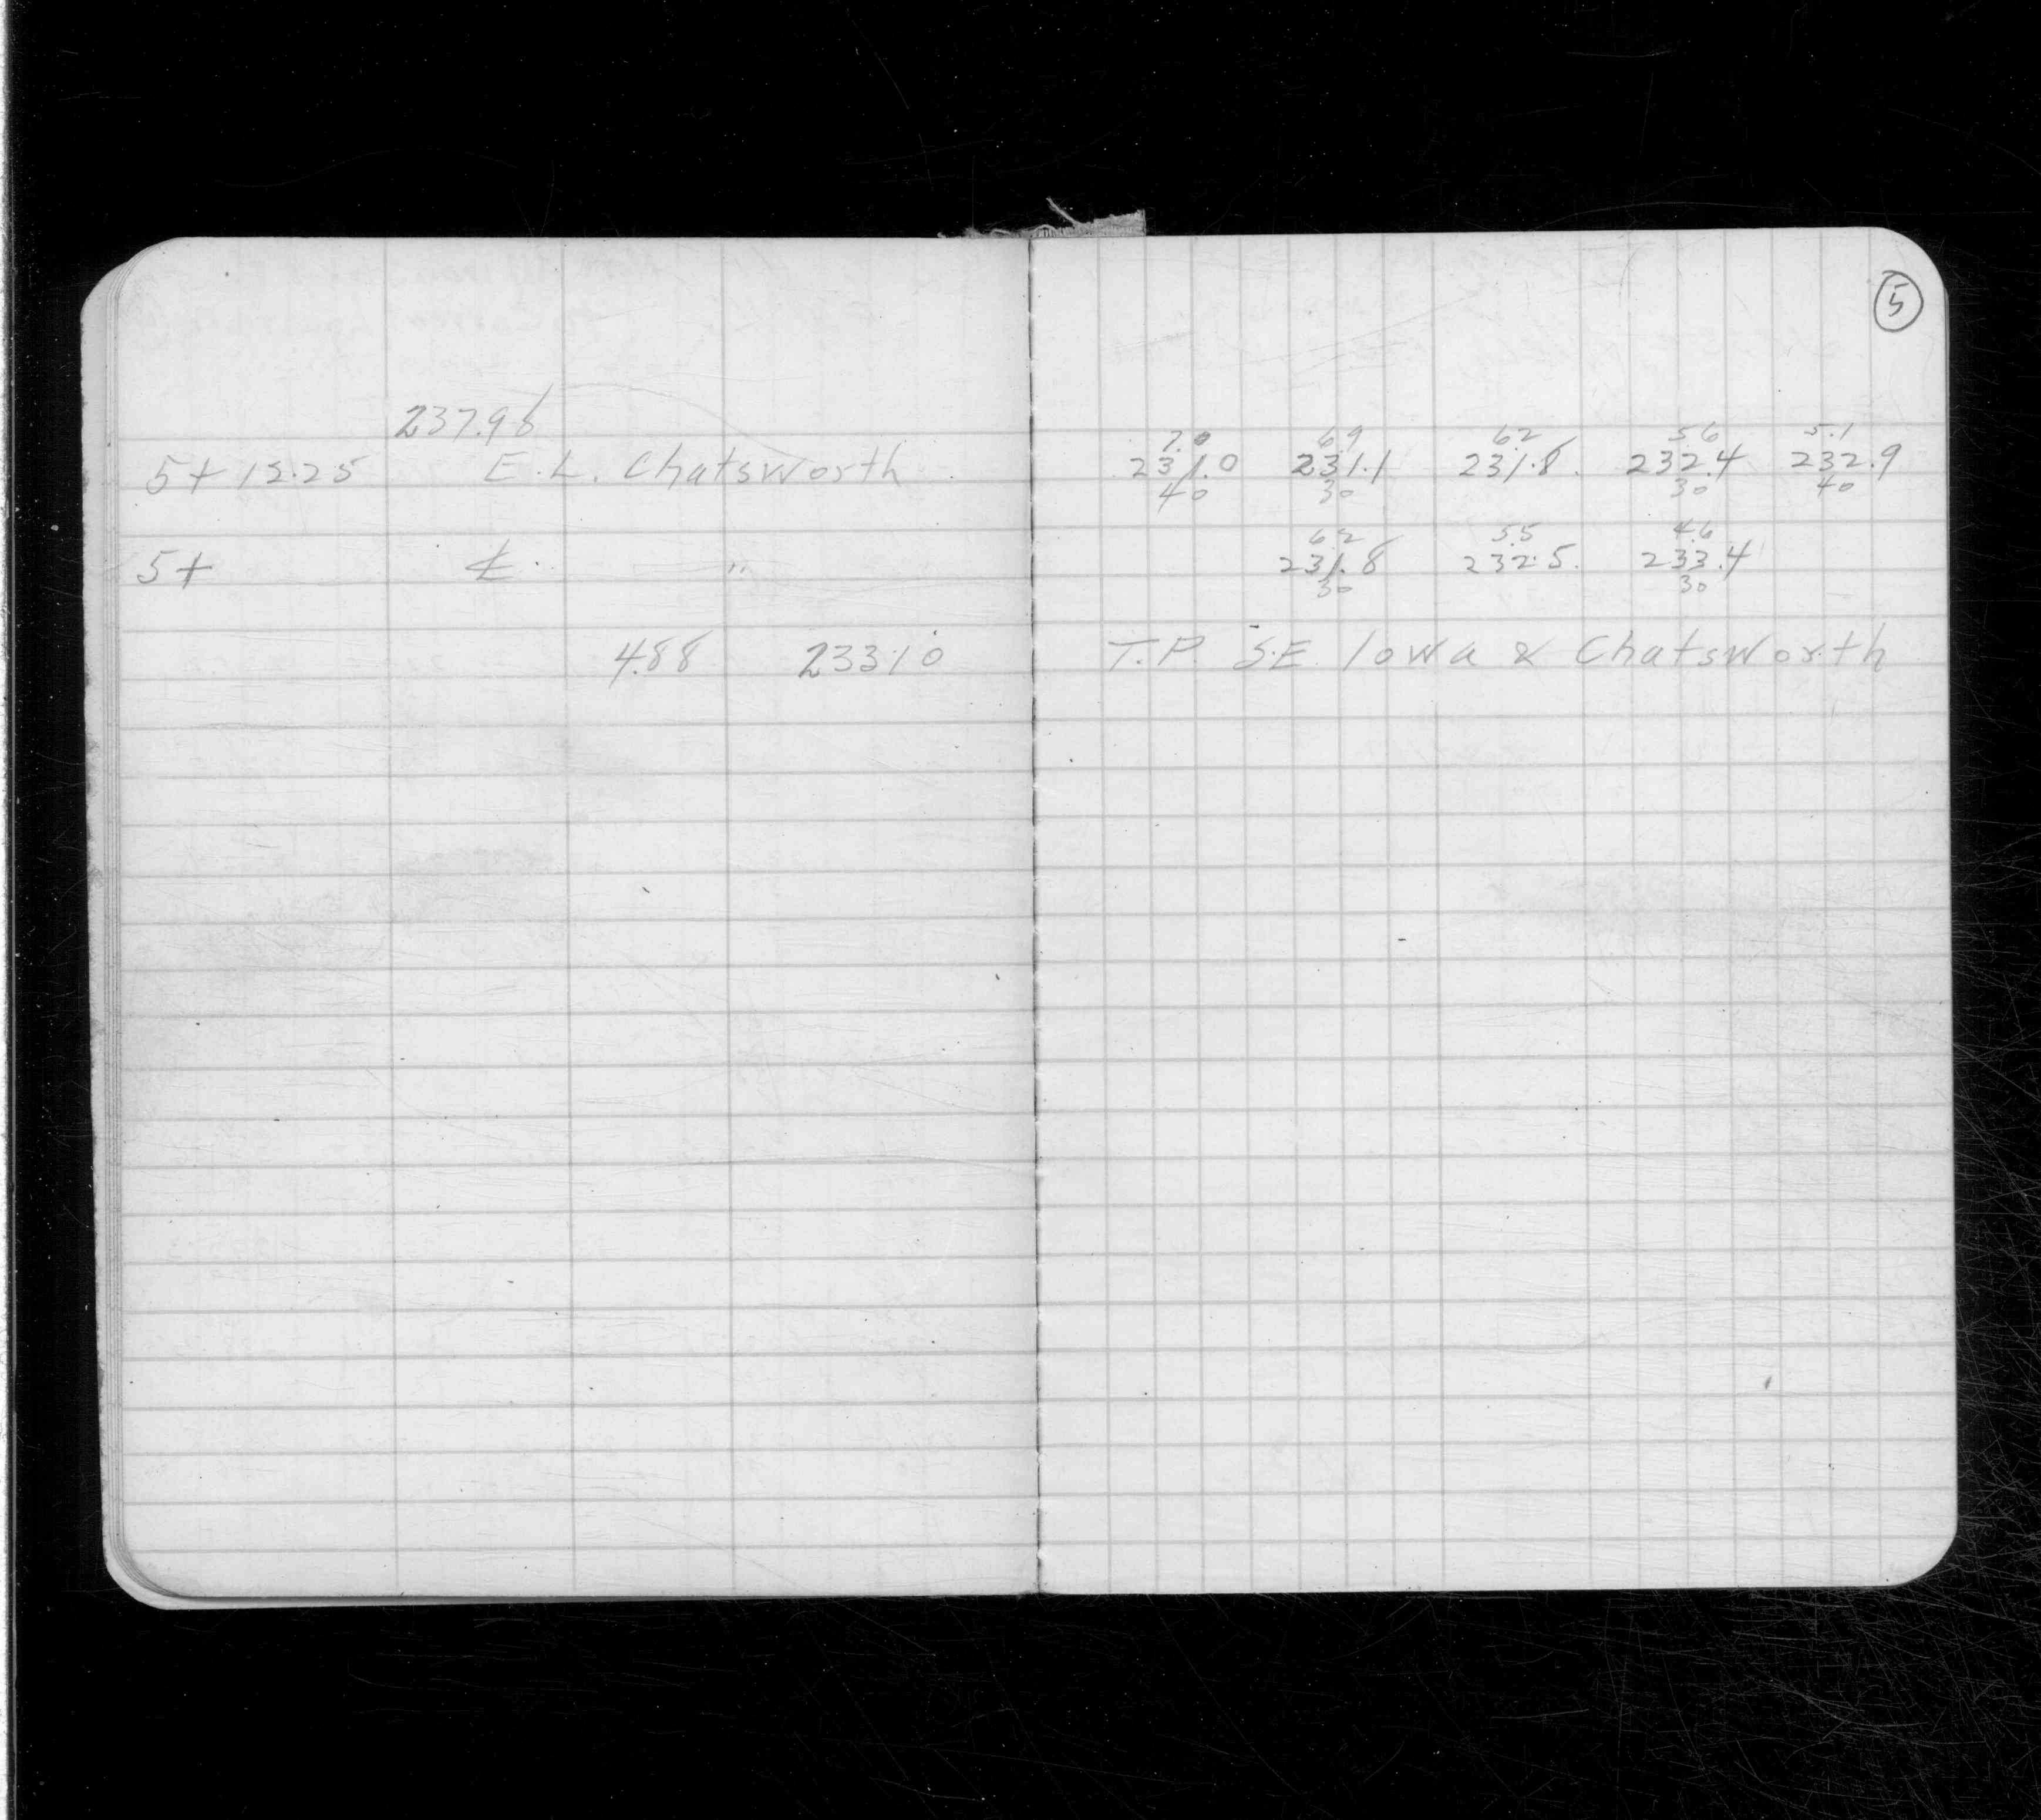 5
237.98
5+ 15.25 E.L. Chatsworth
7.0 6.9 6.2 5.6 5.1
231.0 231.1 231.8 232.4 232.9
40 30 30 40
5+ ℄ "
6.2 5.5 4.6
231.8 232.5 233.4
30 30
4.88 233.10 T.P. S.E. Iowa & Chatsworth